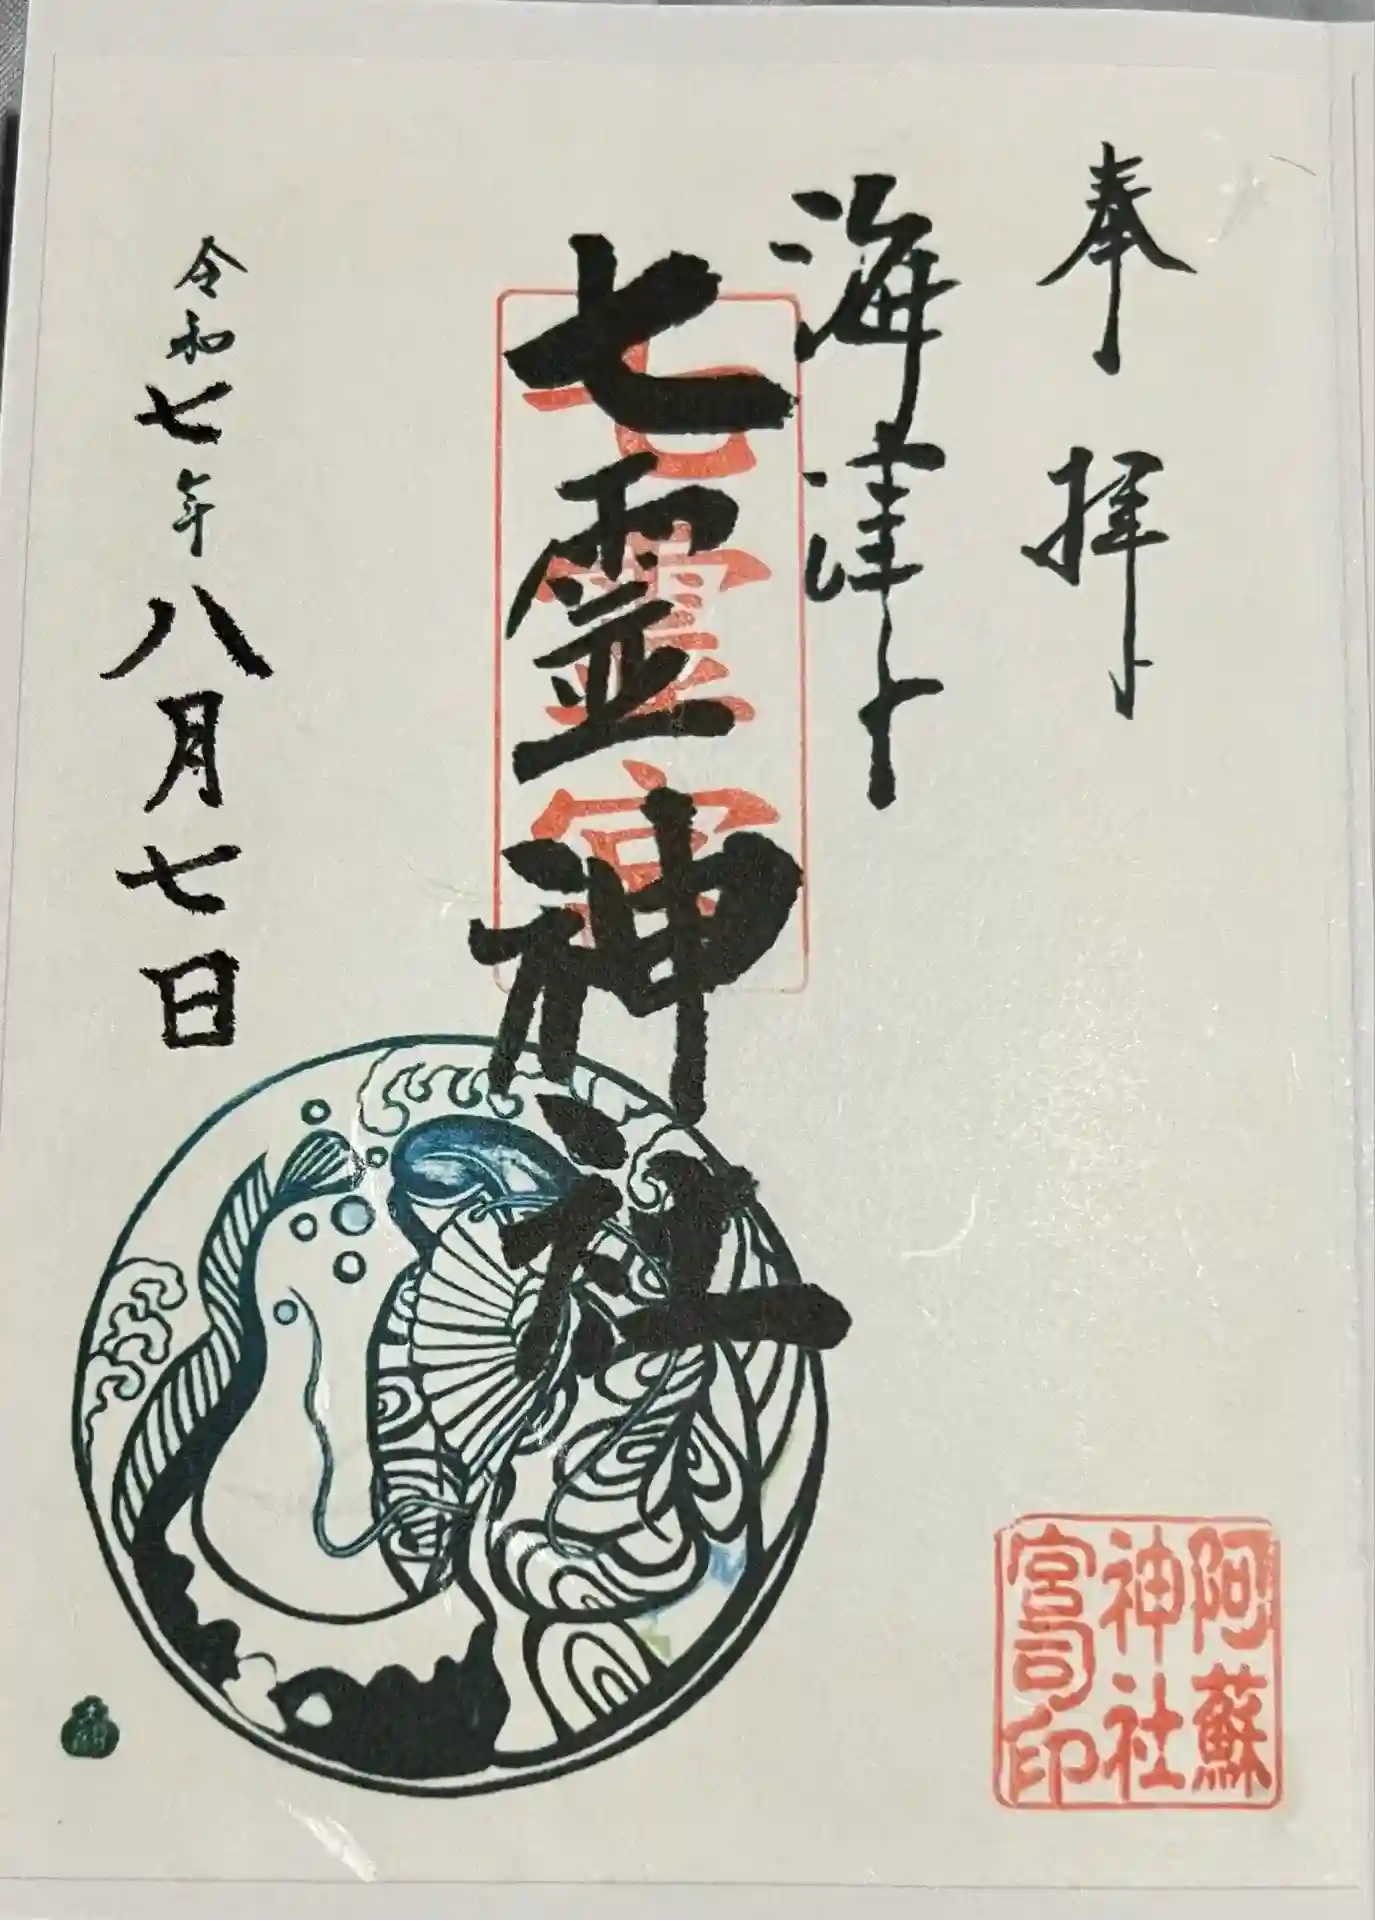 奉拝
海津
七霊神社
七霊宮
令和七年八月七日
阿蘇
神社
宮司印